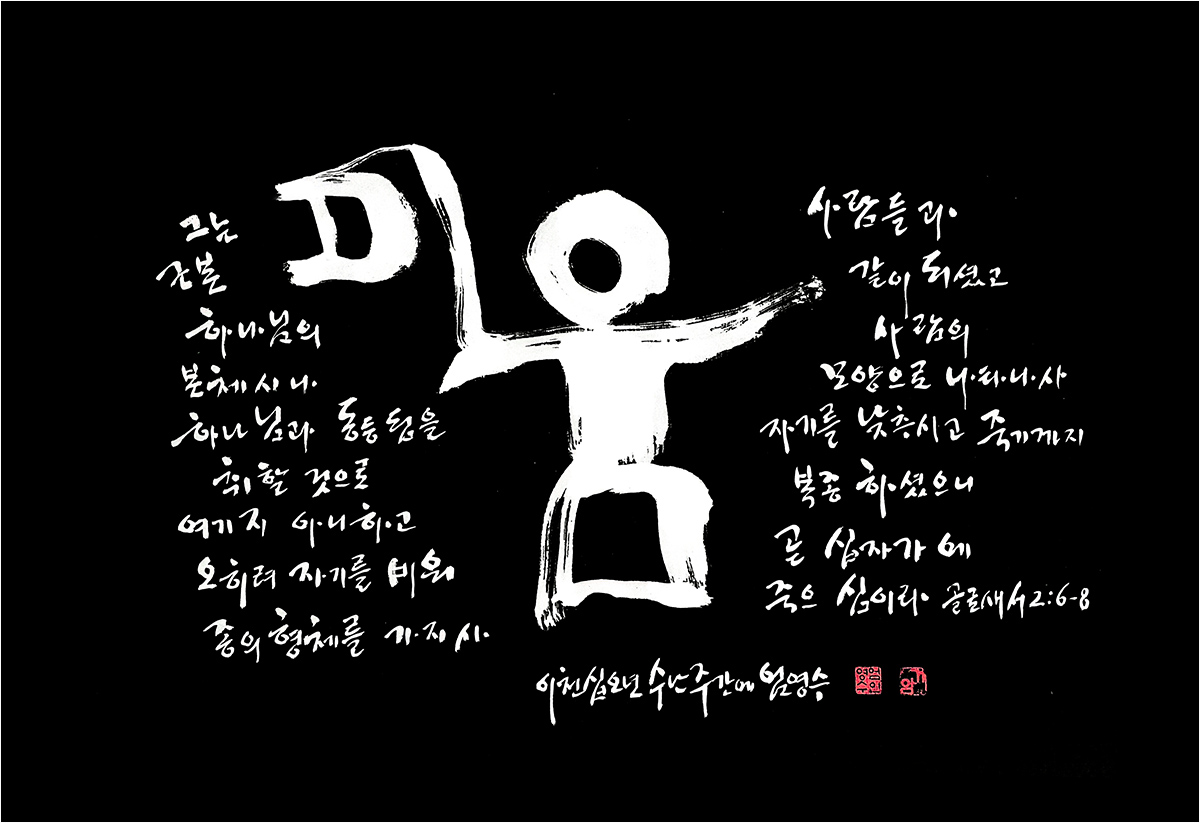 그는
근본
하나님의
본체시나
하나님과 동등됨을
취할 것으로
여기지 아니하고
오히려 자기를 비워
종의 형체를 가지사
사람들과
같이 되셨고
사람의
모양으로 나타나사
자기를 낮추시고 죽기까지
복종 하셨으니
곧 십자가에
죽으심이라 골로새서 2:6-8
이천십오년 수난주간에 엄영수